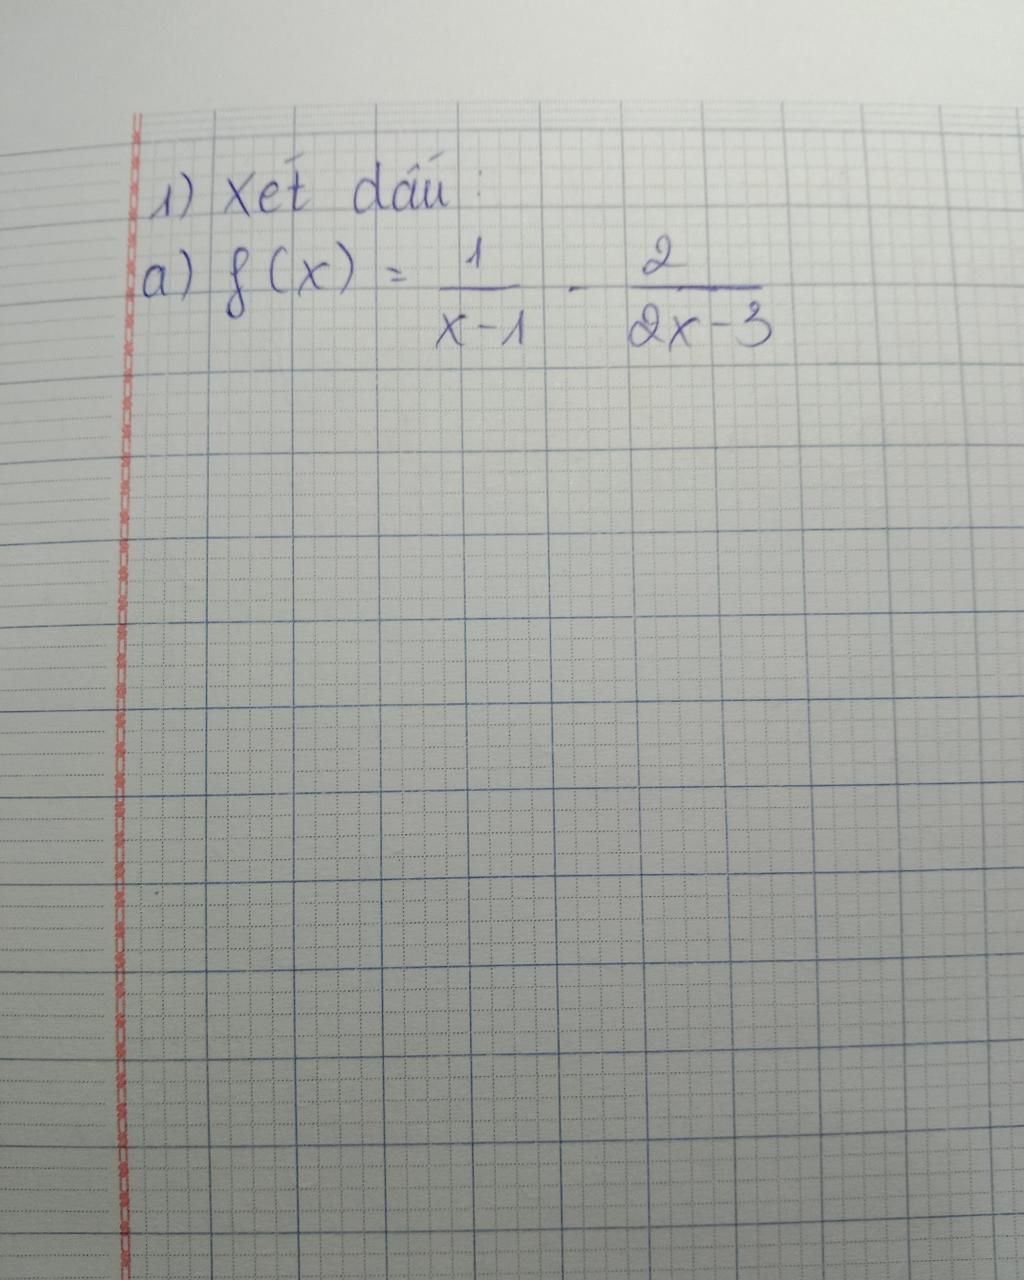 1) Xét dấu:
a) f(x) = \frac{1}{x-1} - \frac{2}{2x-3}